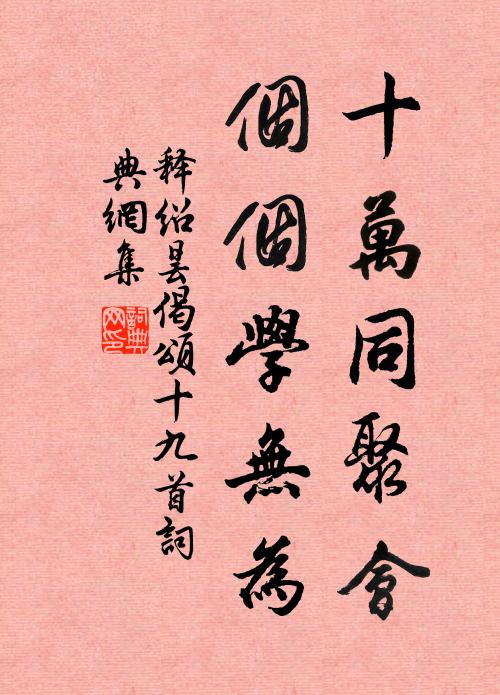 十萬同聚會
個個學無為
释紹昙偈頌十九首詞
典網集
詞典网印